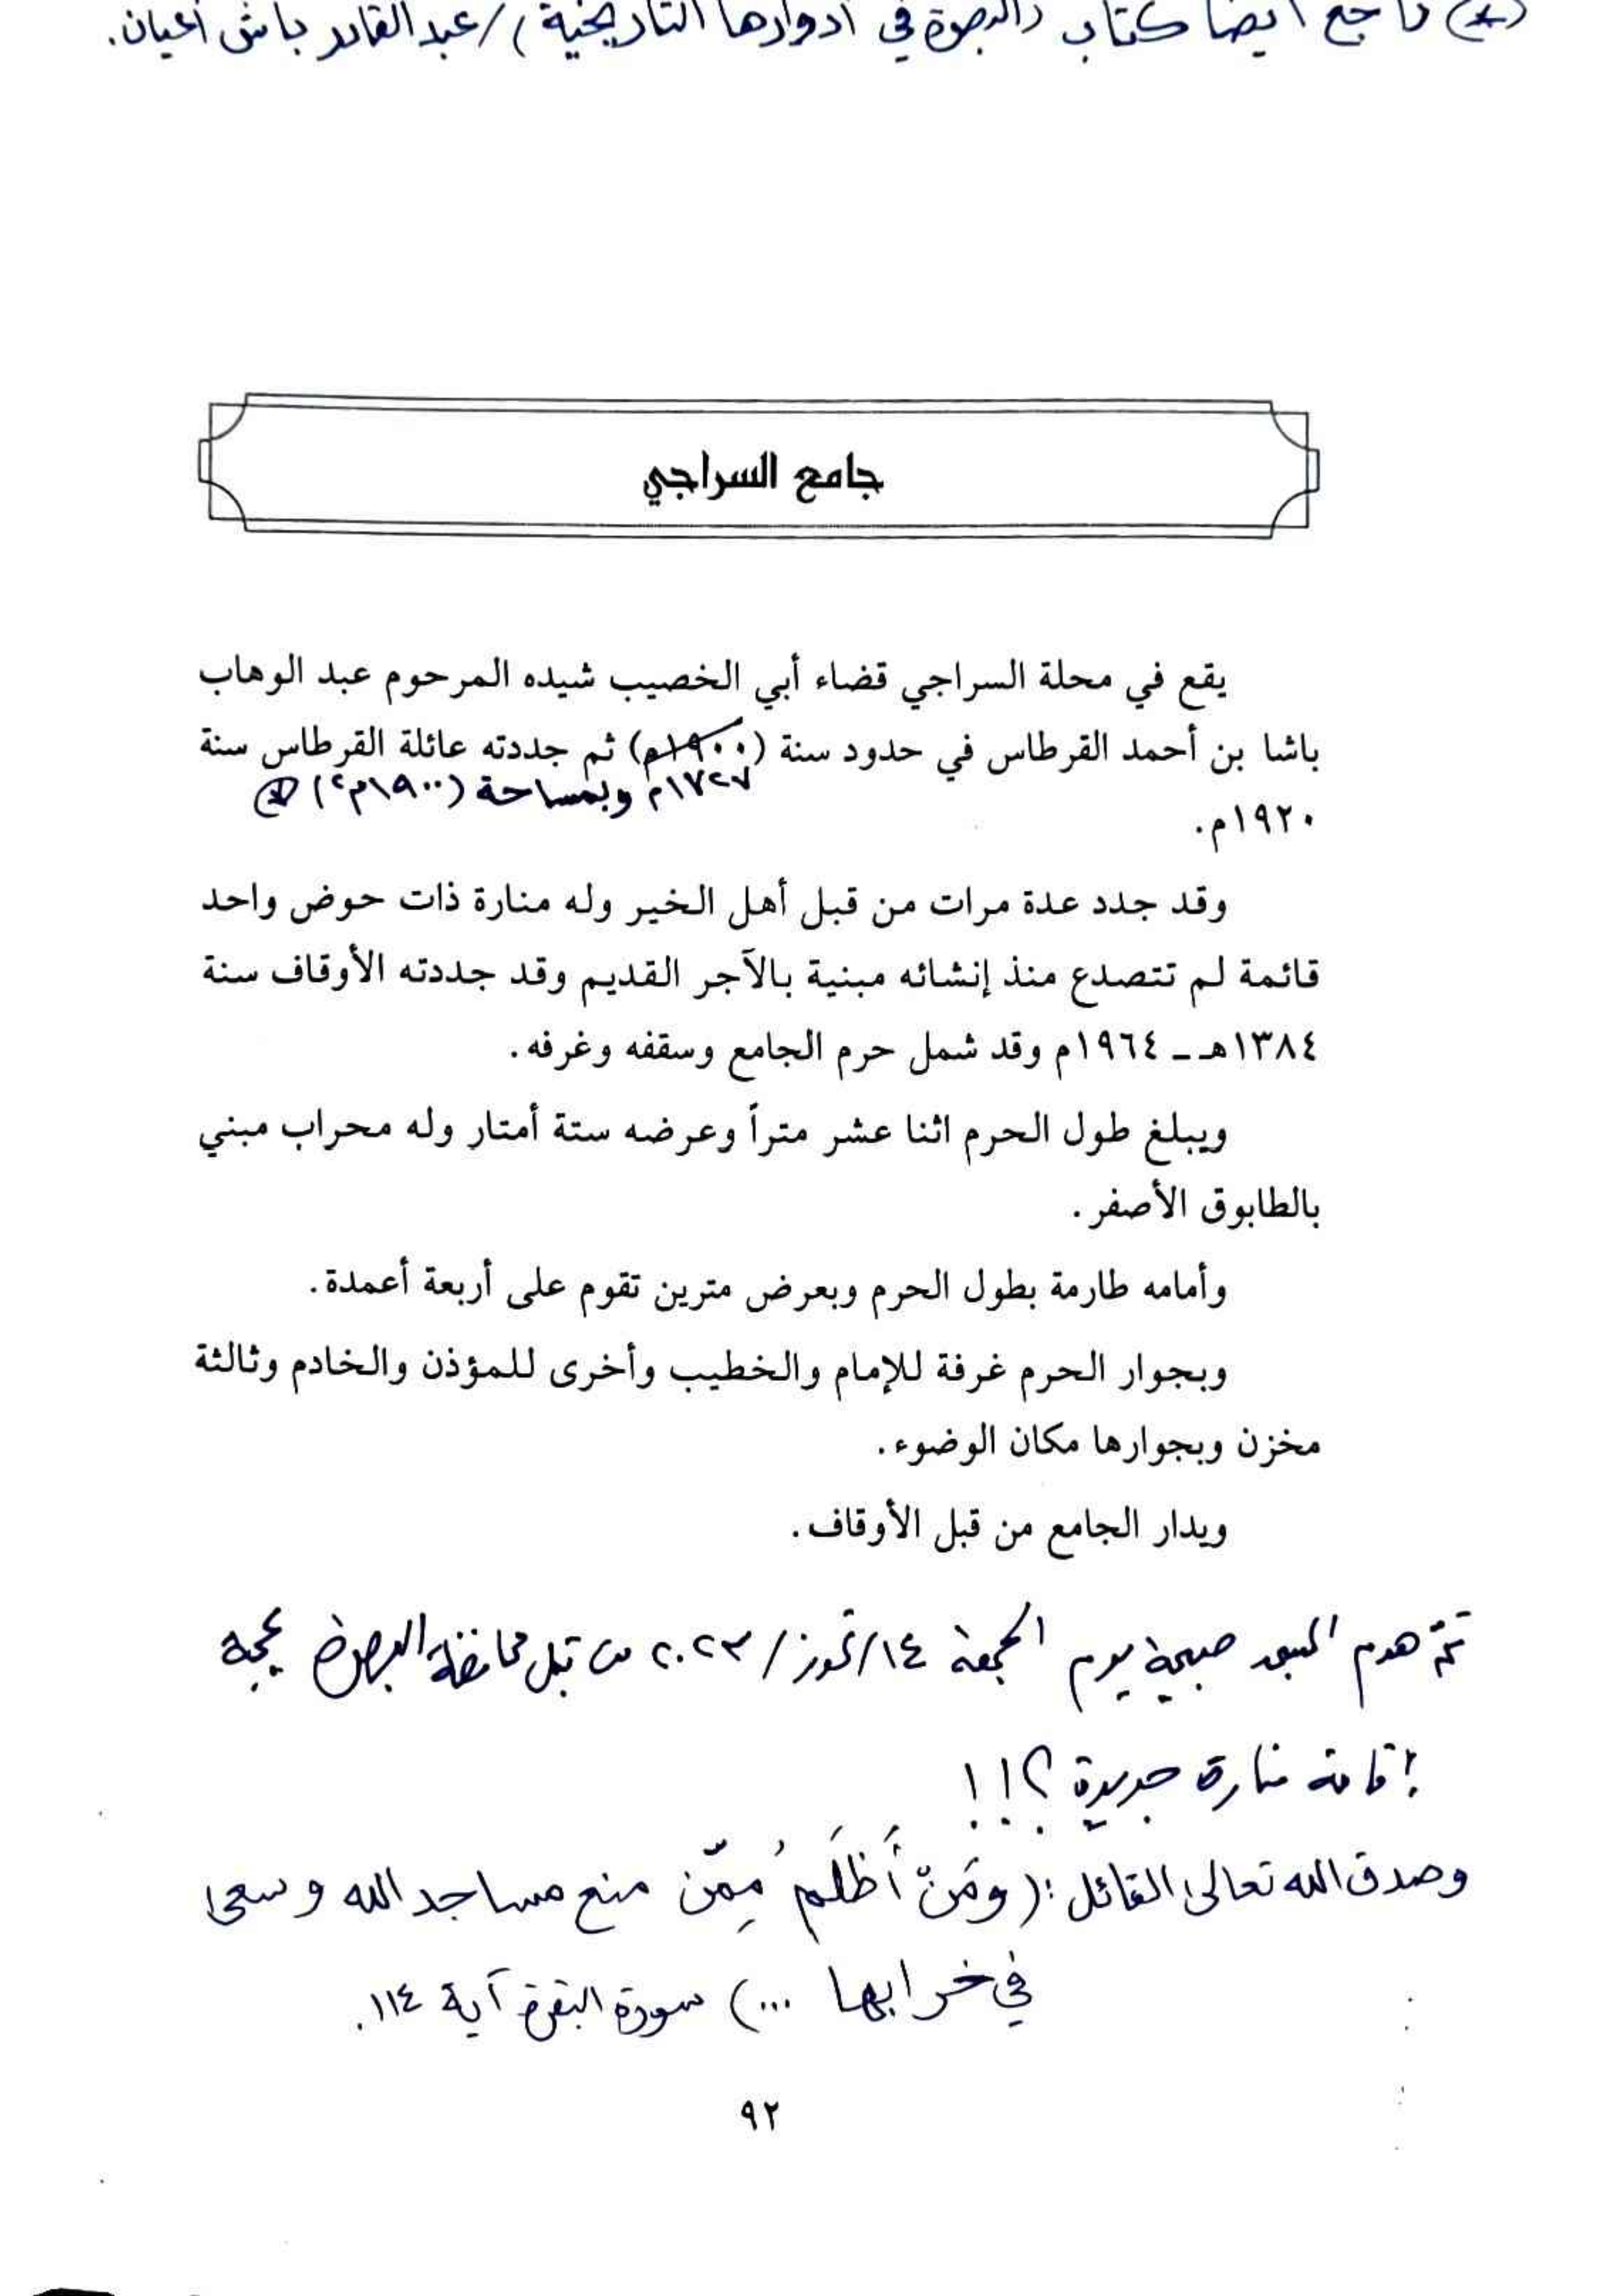 (*) راجع أيضا كتاب (البصرة في أدوارها التاريخية)/عبد القادر باش أعيان.
جامع السراجي
يقع في محلة السراجي قضاء أبي الخصيب شيده المرحوم عبد الوهاب
باشا بن أحمد القرطاس في حدود سنة (١٩٠٠م) ثم جددته عائلة القرطاس سنة
١٧٢٧م وبمساحة (١٩٠٠م٢) (*)
١٩٢٠م.
وقد جدد عدة مرات من قبل أهل الخير وله منارة ذات حوض واحد
قائمة لم تتصدع منذ إنشائه مبنية بالآجر القديم وقد جددته الأوقاف سنة
١٣٨٤هـ ـ ١٩٦٤م وقد شمل حرم الجامع وسقفه وغرفه.
ويبلغ طول الحرم اثنا عشر متراً وعرضه ستة أمتار وله محراب مبني
بالطابوق الأصفر.
وأمامه طارمة بطول الحرم وبعرض مترين تقوم على أربعة أعمدة.
وبجوار الحرم غرفة للإمام والخطيب وأخرى للمؤذن والخادم وثالثة
مخزن وبجوارها مكان الوضوء.
ويدار الجامع من قبل الأوقاف.
تمّ هدم المسجد صبيحة يوم الجمعة ١٤/تموز/٢٠٢٣ من قبل محافظة البصرة بحجة
إقامة منارة جديدة ؟!!
وصدق الله تعالى القائل: (ومَنْ أَظْلَمُ مِمّن منع مساجد الله وسعى
في خرابها ...) سورة البقرة آية ١١٤.
٩٢